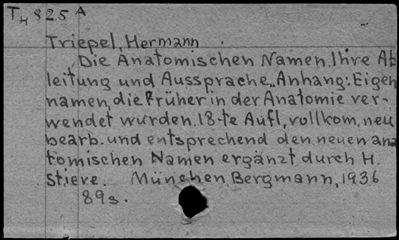 T4825A
Triepel, Hermann
Die Anatomischen Namen, Ihre Ab
leitung und Aussprache. Anhang: Eigen
namen, die früher in der Anatomie ver-
wendet wurden. 18-te Aufl, vollkom, neu
bearb. und entsprechend den neuen ana
tomischen Namen ergänzt durch H.
Stieve. München, Bergmann, 1936
89s.